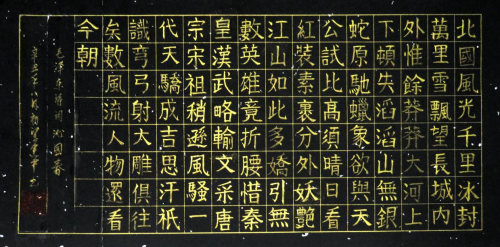 北國風光千里冰封
萬里雪飄望長城內
外惟餘莽莽大河上
下頓失滔滔山無銀
蛇原馳蠟象欲與天
公試比高須晴日看
紅裝素裹分外妖艷
江山如此多嬌引無
數英雄竟折腰惜秦
皇漢武略輸文采唐
宗宋祖稍遜風騷一
代天驕成吉思汗祇
識弯弓射大雕俱往
矣數風流人物還看
今朝
毛澤東詩詞沁園春
辛丑年